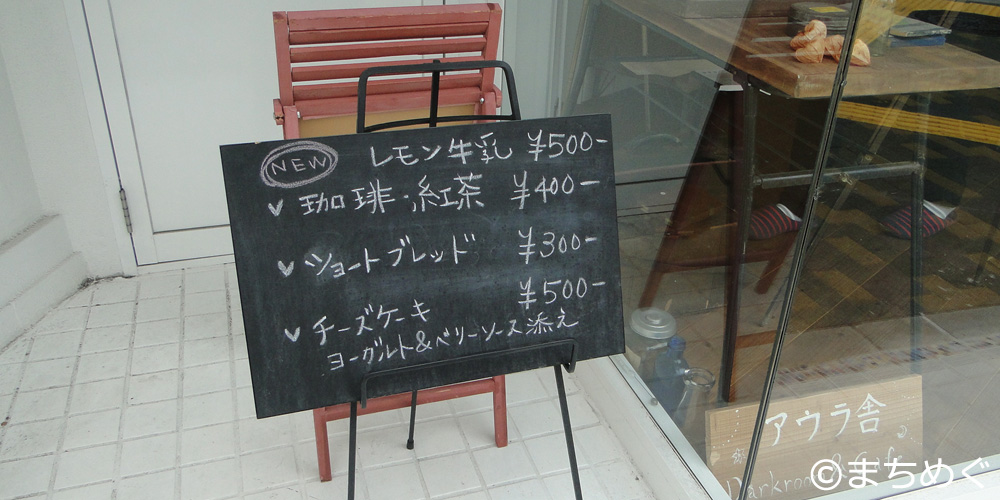 NEW レモン牛乳 ¥500-
珈琲・紅茶 ¥400-
ショートブレッド ¥300-
チーズケーキ ¥500-
ヨーグルト&ベリーソース添え
アウラ舎
Darkroom & Cafe
©まちめぐ